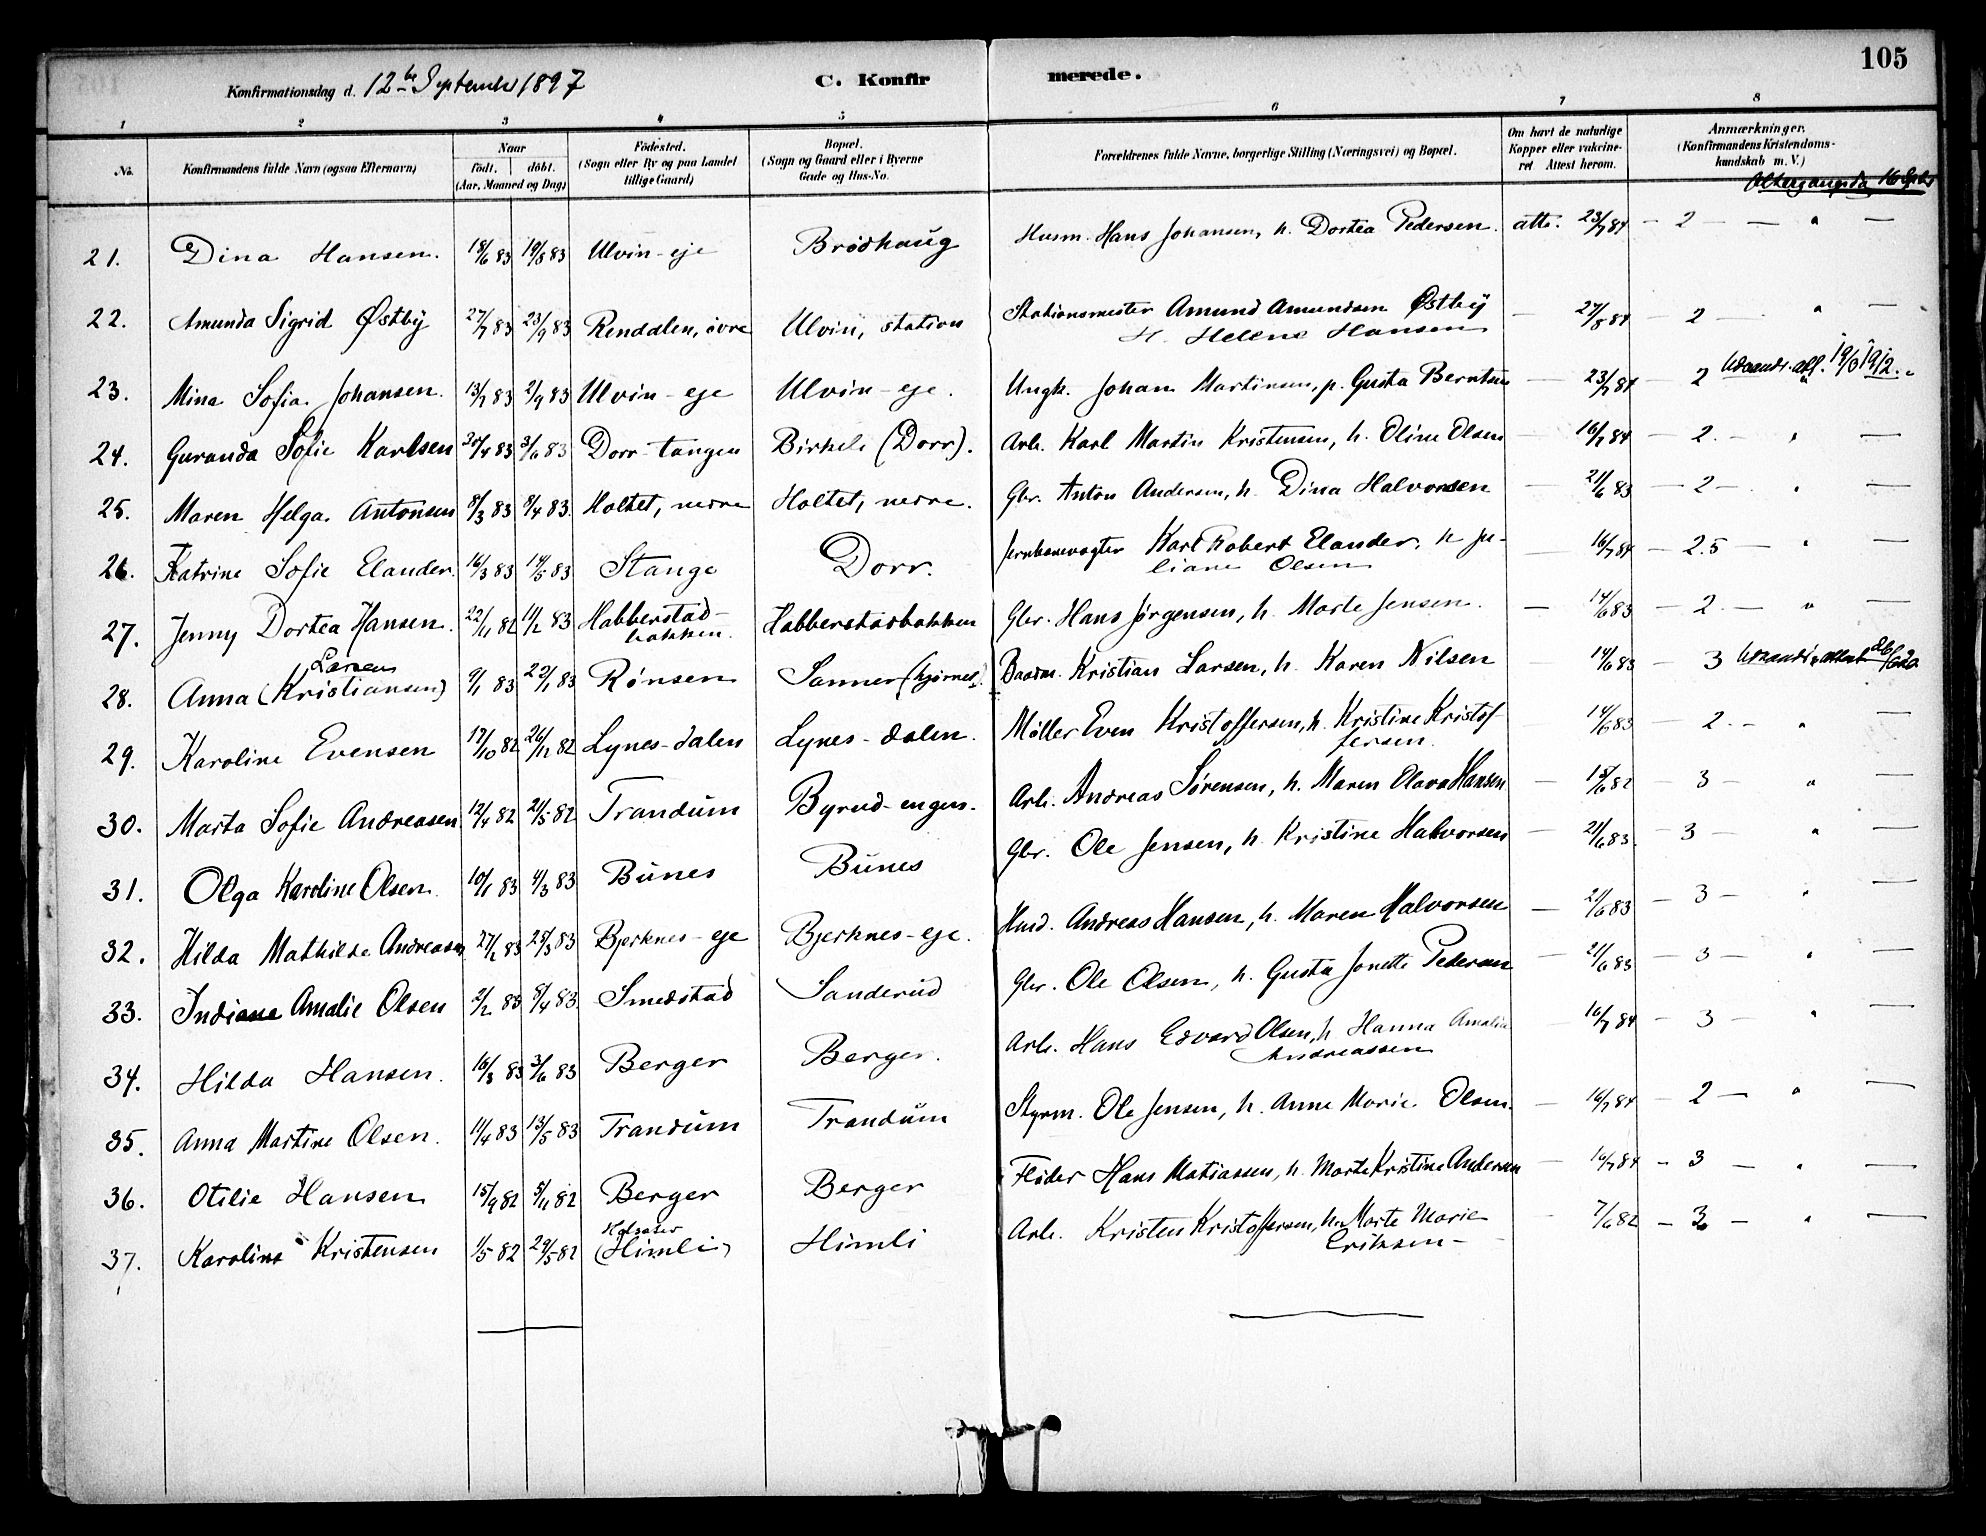 105
Konfirmationsdag d. 12te September 1897
C. Konfirmerede.
1 2 3 4 5 6 7 8
No.
Konfirmandens fulde Navn (ogsaa Efternavn)
Naar
født. døbt.
(Aar, Maaned og Dag)
Fødested.
(Sogn eller By og paa Landet
tillige Gaard)
Bopæl.
(Sogn og Gaard eller i Byerne
Gade og Hus-No.
Forældrenes fulde Navne, borgerlige Stilling (Næringsvei) og Bopæl.
Om havt de naturlige
Kopper eller vakcine-
ret Attest herom.
Anmærkninger.
(Konfirmandens Kristendoms-
kundskab m. V.)
Altergangsdag 16 Septbr
21. Dina Hansen. 18/6 83 19/8 83 Ulvin-eje Brødhaug Husm. Hans Johansen, h. Dortea Pedersen. att. 23/7 84 – 2 – — " —
22. Amunda Sigrid Østby 27/7 83 23/9 83 Rendalen, øvre Ulvin, station Stationsmester Amund Amundsen Østby
H. Helene Hansen — 27/8 84 – 2 — " —
23. Mina Sofia Johansen. 13/7 83 2/9 83 Ulvin-eje Ulvin-eje. Ungk. Johan Martinsen, p. Gusta Berntsen — 23/7 84 – 2 Udvandr. att. 19/3 1912. "
24. Guranda Sofie Karlsen 30/4 83 3/6 83 Dorr-tangen Birkeli (Dorr). Arb. Karl Martin Kristensen, h. Oline Olsen — 16/7 84 – 2. – " —
25. Maren Helga Antonsen 8/3 83 8/4 83. Holtet, nerre Holtet, nerre. Gbr. Anton Andersen, h. Dina Halvorsen — 21/6 83 – 2 – " —
26. Katrine Sofie Elander. 16/3 83 14/5 83 Stange Dorr. Jernbanevogter Karl Robert Elander, h Ju-
liane Olsen — 16/7 84 – 2.5 – " —
27. Jenny Dortea Hansen. 22/11 82 11/2 83 Habberstad-
bakken. Habberstadbakken Gbr. Hans Jørgensen, h. Marte Jensen. — 14/6 83 – 2. – " —
Larsen
28. Anna (Kristiansen) 9/1 83 23/1 83 Rønsen Sanner (hjørnet). Baadm. Kristian Larsen, h. Karen Nilsen 14/6 83 – 3 Udvandr. attest
29. Karoline Evensen 17/10 82 26/12 82 Lynes-dalen Lynes-dalen. Møller Even Kristoffersen, h. Kristine Kristof-
fersen. 14/6 83 2. – " —
30. Marta Sofie Andreasen 12/4 82 21/5 82 Trandum Byrud-engen. Arb. Andreas Sørensen, h. Maren Olava Hansen — 15/6 82 – 3 – " —
31. Olga Karoline Olsen. 10/1 83 4/3 83 Bunes Bunes Gbr. Ole Jensen, h. Kristine Halvorsen — 21/6 83. – 3 — " —
32. Hilda Mathilde Andreasen 27/1 83 25/3 83 Bjerknes-eje Bjerknes-eje. Husd. Andreas Hansen, h. Maren Halvorsen — 21/6 83 – 3 – " —
33. Indiane Amalie Olsen 2/2 83 8/4 83. Smedstad Sanderud Gbr. Ole Olsen, h. Gusta Jonette Pedersen — 21/6 83 – 3 – " —
34. Hilda Hansen. 16/3 83 3/6 83 Berger Berger. Arb. Hans Edvard Olsen, h Hanna Amalie
Andreassen — 16/7 84 – 3 – " —
35. Anna Martine Olsen. 11/4 83 13/5 83 Trandum Trandum Styrm. Ole Jensen, h. Anne Marie Olsen. — 16/7 84 – 2 – " —
36. Otilie Hansen 15/9 82 5/11 82 Berger Berger Fløder Hans Matiassen, h. Marte Kristine Andersen — 16/7 84 – 3 – " —
37. Karoline Kristensen 1/5 82 29/5 82 (Himli) Himli Arb. Kristen Kristoffersen, h. Marte Marie
Eriksen – 7/6 82 – 3 – " —